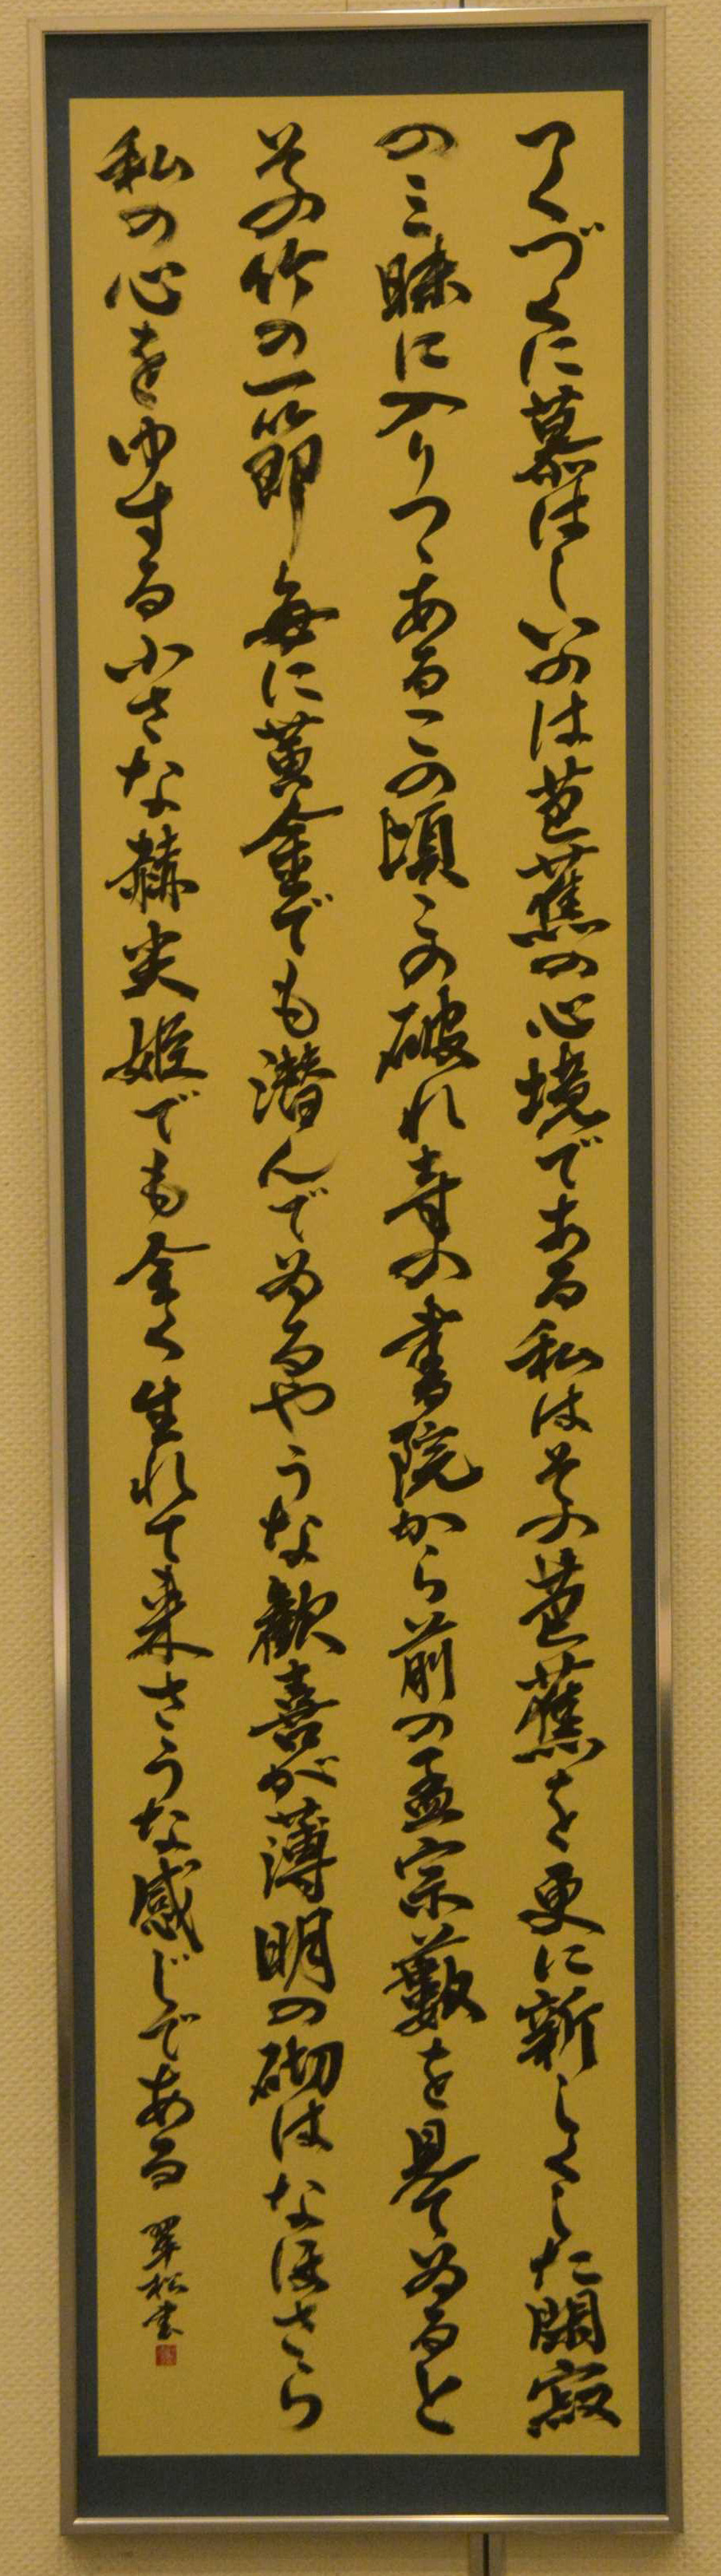 つくづくに慕はしいのは芭蕉の心境である私はその芭蕉を更に新しくした閑寂
の三昧に入りつゝあるこの頃この破れ寺の書院から前の孟宗藪を見てゐると
その竹の一節毎に黄金でも潜んでゐるやうな歓喜が薄明の砌はなほさら
私の心をゆする小さな赫奕姫でも全く生れて来さうな感じである
翠松書